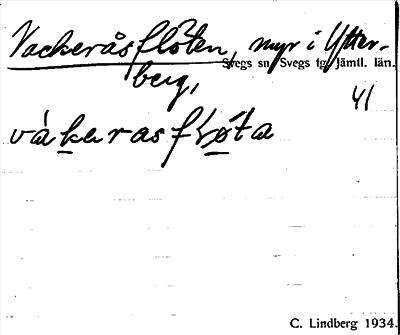 Vackeråsflöten, myr i Ytter-
berg,
Svegs sn Svegs tg Jämtl. län.
41
våkerasfløta
C. Lindberg 1934.